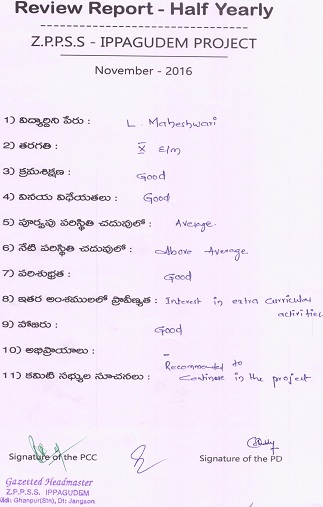 Review Report - Half Yearly
Z.P.P.S.S - IPPAGUDEM PROJECT
November - 2016
1) విద్యార్థిని పేరు : L. Maheshwari
2) తరగతి : X E/m
3) క్రమశిక్షణ : Good
4) వినయ విధేయతలు : Good
5) పూర్వపు పరిస్థితి చదువులో : Average.
6) నేటి పరిస్థితి చదువులో : Above Average
7) పరిశుభ్రత : Good
8) ఇతర అంశములలో ప్రావీణ్యత : Interest in extra curricular
activities
9) హాజరు : Good
10) అభిప్రాయాలు : -
Recommended to
11) కమిటి సభ్యుల సూచనలు : Continue in the project
Signature of the PCC Signature of the PD
Gazetted Headmaster
Z.P.P.S.S. IPPAGUDEM
Ghanpur(Stn), Dt: Jangaon